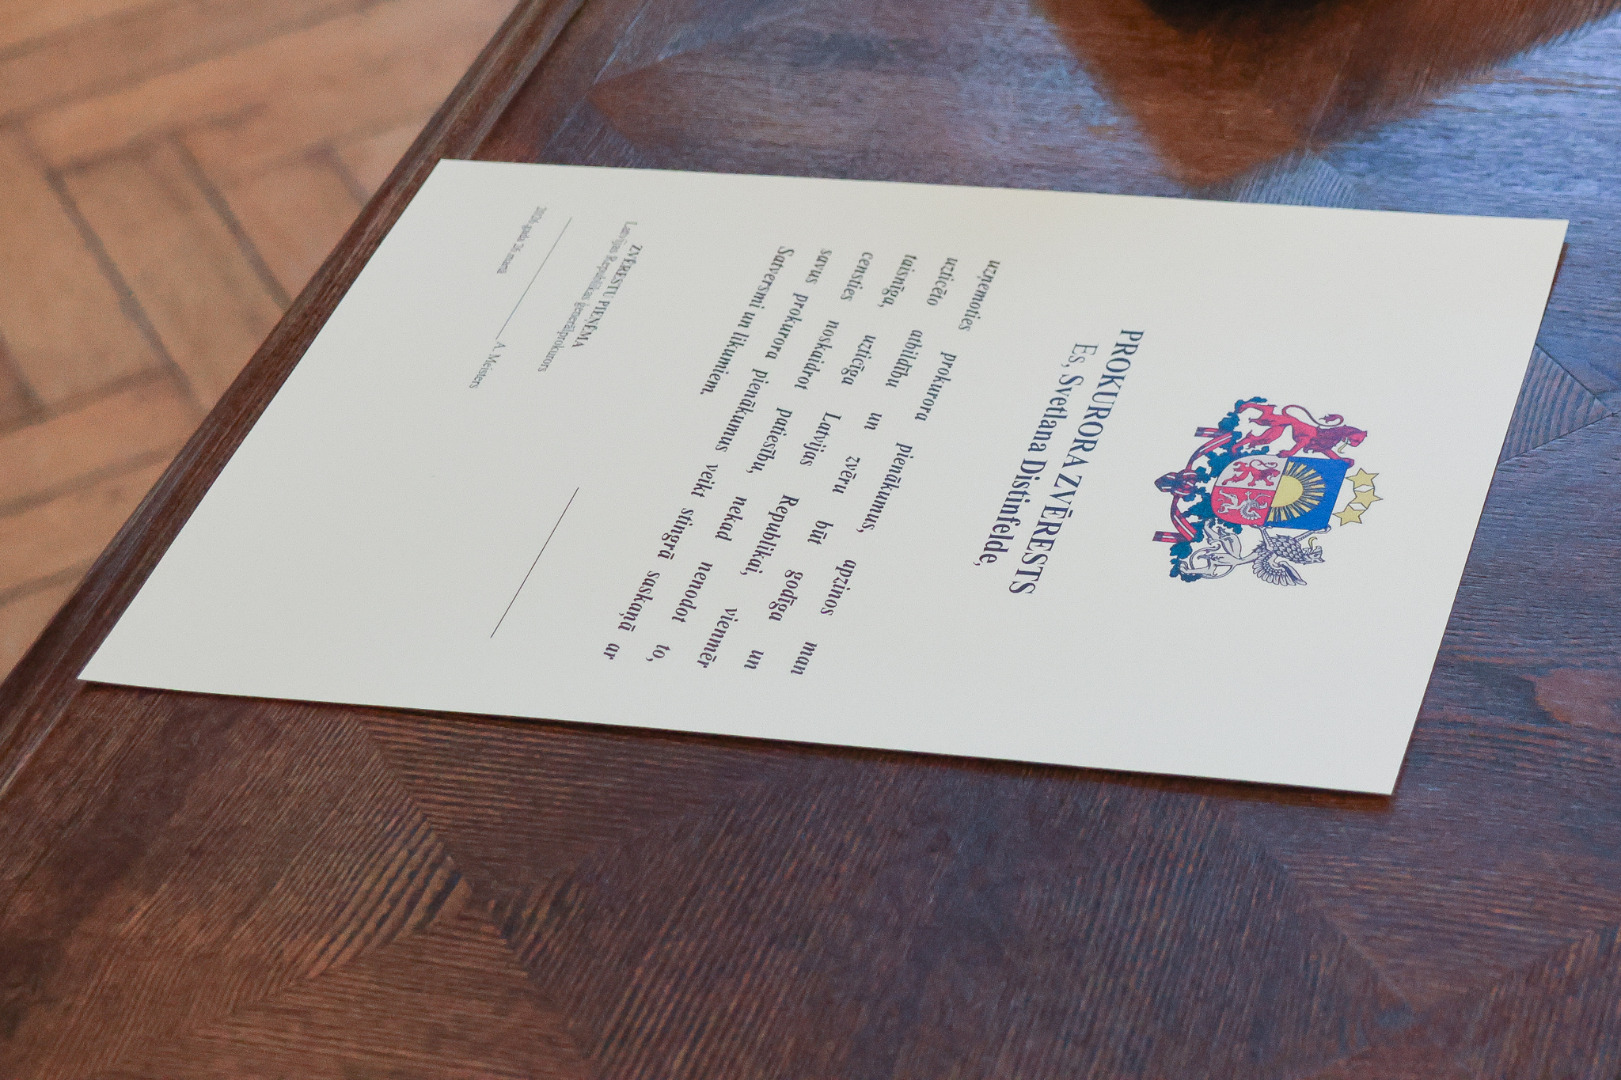 PROKURORA ZVĒRESTS
Es, Svetlana Distinfelde,
uzņemoties prokurora pienākumus, apzinos man
uzticēto atbildību un zvēru būt godīga un
taisnīga, uzticīga Latvijas Republikai, vienmēr
censties noskaidrot patiesību, nekad nenodot to,
savus prokurora pienākumus veikt stingrā saskaņā ar
Satversmi un likumiem.
ZVĒRESTU PIEŅĒMA
Latvijas Republikas ģenerālprokurors
A. Meisters
gada